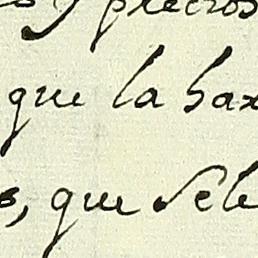 y precios
que la bax
s, que Sele